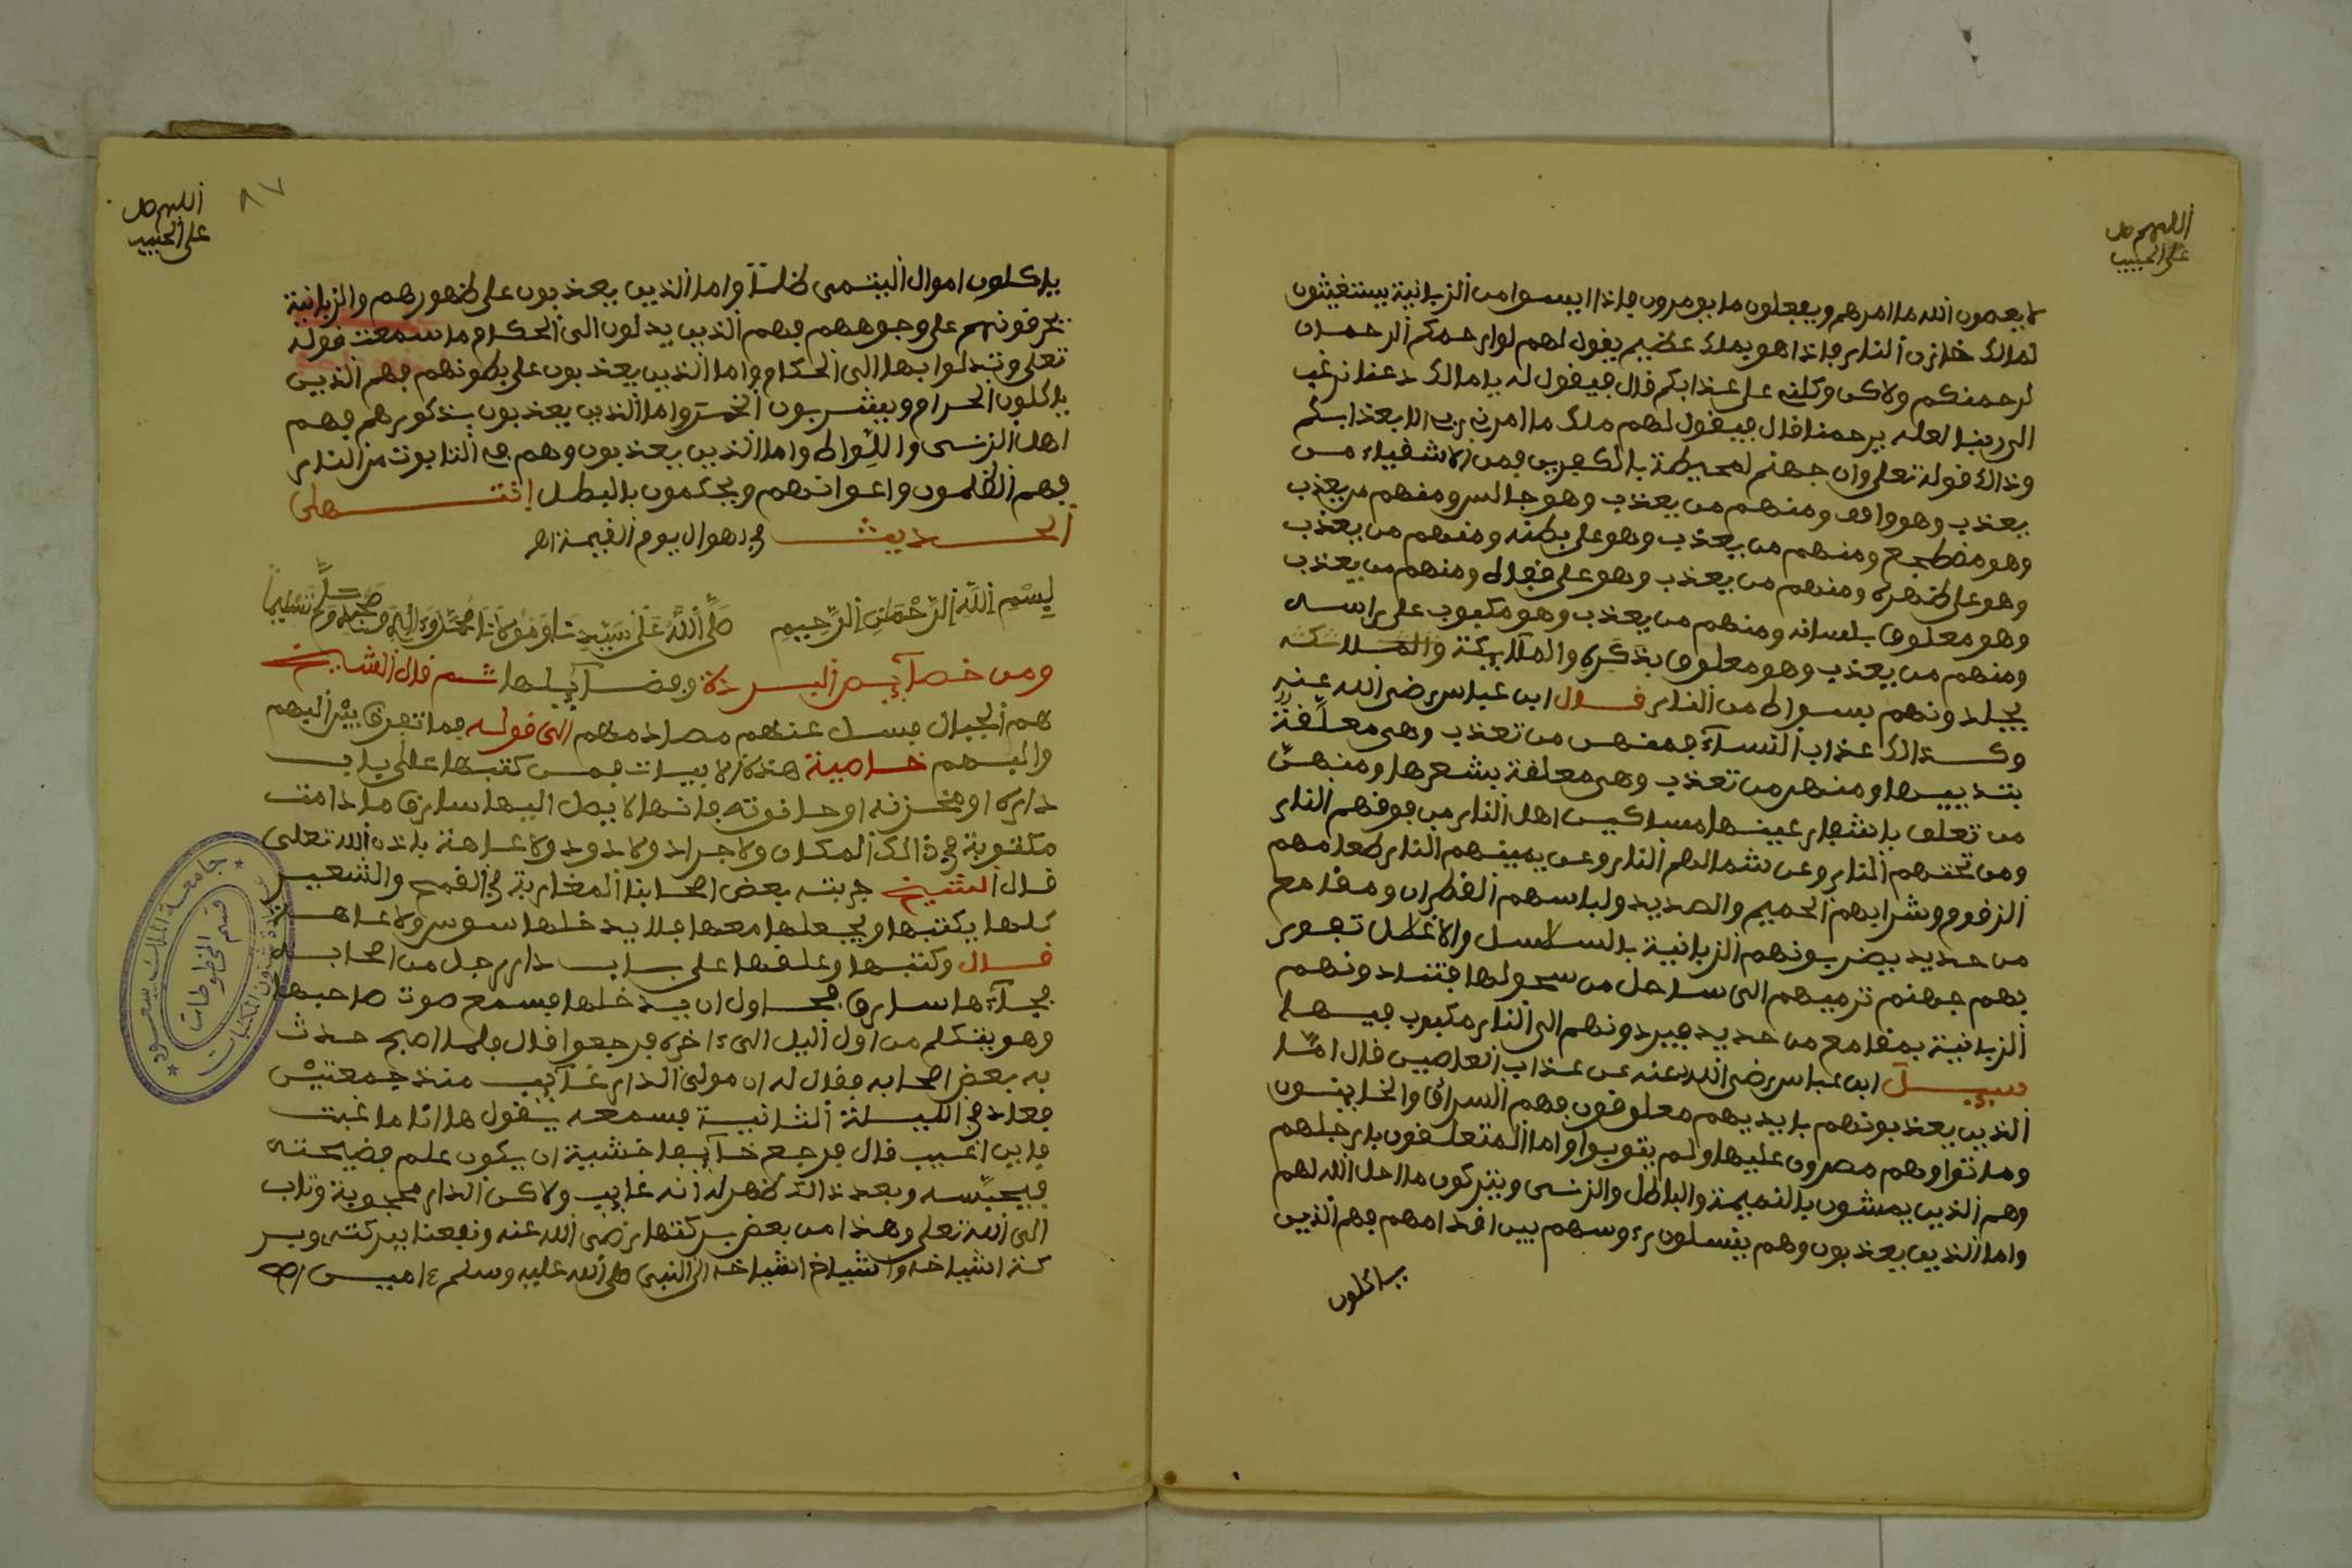 اللهم صل
على الحبيب
لا يعصون الله ما امرهم ويفعلون ما يومرون فاذا ايسوا من الزبانية يستغيثون
لمالك خازن النار فاذا هو بملك عظيم يقول لهم لو يرحمكم الرحمان
لرحمتكم ولاكن وكلني على عذابكم قال فيقول له يا مالك دعنا نرغب
الى ربنا لعله يرحمنا قال فيقول لهم ملك ما امرني ربي الا بعذابكم
وذالك قوله تعلى وان جهنم لمحيطة بالكفرين فمن الاشقياء من
يعذب وهو واقف ومنهم من يعذب وهو جالس ومنهم من يعذب
وهو مضطجع ومنهم من يعذب وهو على بطنه ومنهم من يعذب
وهو على ظهره ومنهم من يعذب وهو على ومنهم من يعذب
وهو معلوق بلسانه ومنهم من يعذب وهو مكبوب على راسه
ومنهم من يعذب وهو معلوق بذكره والملايكة والملائكة
يجلدونهم بسواط من النار قال ابن عباس رضى الله عنه
وكذالك عذاب النساء فمنهن من تعذب وهي معلقة
بثدييها ومنهن من تعذب وهى معلقة بشعرها ومنهن
من تعلق باشفار عينها مساكين اهل النار من فوقهم النار
ومن تحتهم النار وعن شمالهم النار وعن يمينهم النار طعامهم
الزقوم وشرابهم الحميم والصديد ولباسهم القطران ومقامع
من حديد يضربونهم الزبانية بالسلاسل والاغلال تفور
بهم جهنم ترميهم الى ساحل من سحولها فتنادونهم
الزبانية بمقامع من حديد فيردونهم الى النار مكبوب فيها
سيل ابن عباس رضى الله عنه عن عذاب العاصين قال اما
الذين يعذبونهم بايديهم معلوقون فهم السراق والخاينون
وماتوا وهم مصرون عليها ولم يتوبوا واما المتعلقون بارجلهم
وهم الذين يمشون بالنميمة والباطل والزنى ويتركون ما احل الله لهم
واما الذين يعذبون وهم يغسلون رءوسهم بين اقدامهم فهم الذين
ياكلون
اللهم صل
على الحبيب
٨٧
ياكلون اموال اليتمى ظلما واما الذين يعذبون على ظهورهم والزبانية
تحرقونهم على وجوههم فهم الذين يدلون الى الحكام ما سمعت قوله
تعلى وتدلوا بها الى الحكام واما الذين يعذبون على بطونهم فهم الذين
ياكلون الحرام ويشربون الخمر واما الذين يعذبون بذكورهم فهم
اهل الزنى واللواط واما الذين يعذبون وهم في التابوت من النار
فهم الظلمون واعوانهم ويحكمون بالبطل انتهى
الحديث في اهوال يوم القيمة اهـ
بسم الله الرحمن الرحيم صلى الله على سيدنا ومولانا محمد وءاله وصحبه وسلم تسليما
ومن خصايص البردة وفضايلها ثم قال الشيخ
هم الجبال فسل عنهم مصادمهم الى قوله فما تفرق بين البهم
والبهم خاصية هذه الابيات فمن كتبها على باب
داره او مخزنه او حانوته فانها لا يصل اليها سارق ما دامت
مكتوبة في ذالك المكان ولا جراد ولا دود ولا عاهة باذن الله تعلى
قال الشيخ جربته بعض اصحابنا المغاربة في القمح والشعير
كلها يكتبها ويجعلها معها فلا يدخلها سوس ولا عاهة
قال وكتبها وعلقها على باب دار رجل من اصحابه
فجاءها سارق فحاول ان يدخلها فسمع صوت صاحبها
وهو يتكلم من اول اليل الى ءاخره فرجعوا قال فلما اصبح حدث
به بعض اصحابه فقال له ان مولى الدار غايب منذ جمعتين
فعاد في الليلة الثانية فسمعه يقول ها انا ما غبت
فاين اغيب قال فرجع خايبا خشية ان يكون علم فضيحته
فيحبسه وبعد ذالك ظهر له انه غايب ولاكن الدار محجوبة وتاب
الى الله تعلى وهذا من بعض بركتها رضى الله عنه ونفعنا ببركته وبر
كة اشياخه واشياخ اشياخه الى النبي صلى الله عليه وسلم ءامين اهـ
جامعة الملك سعود
عمادة شؤون المكتبات
قسم المخطوطات